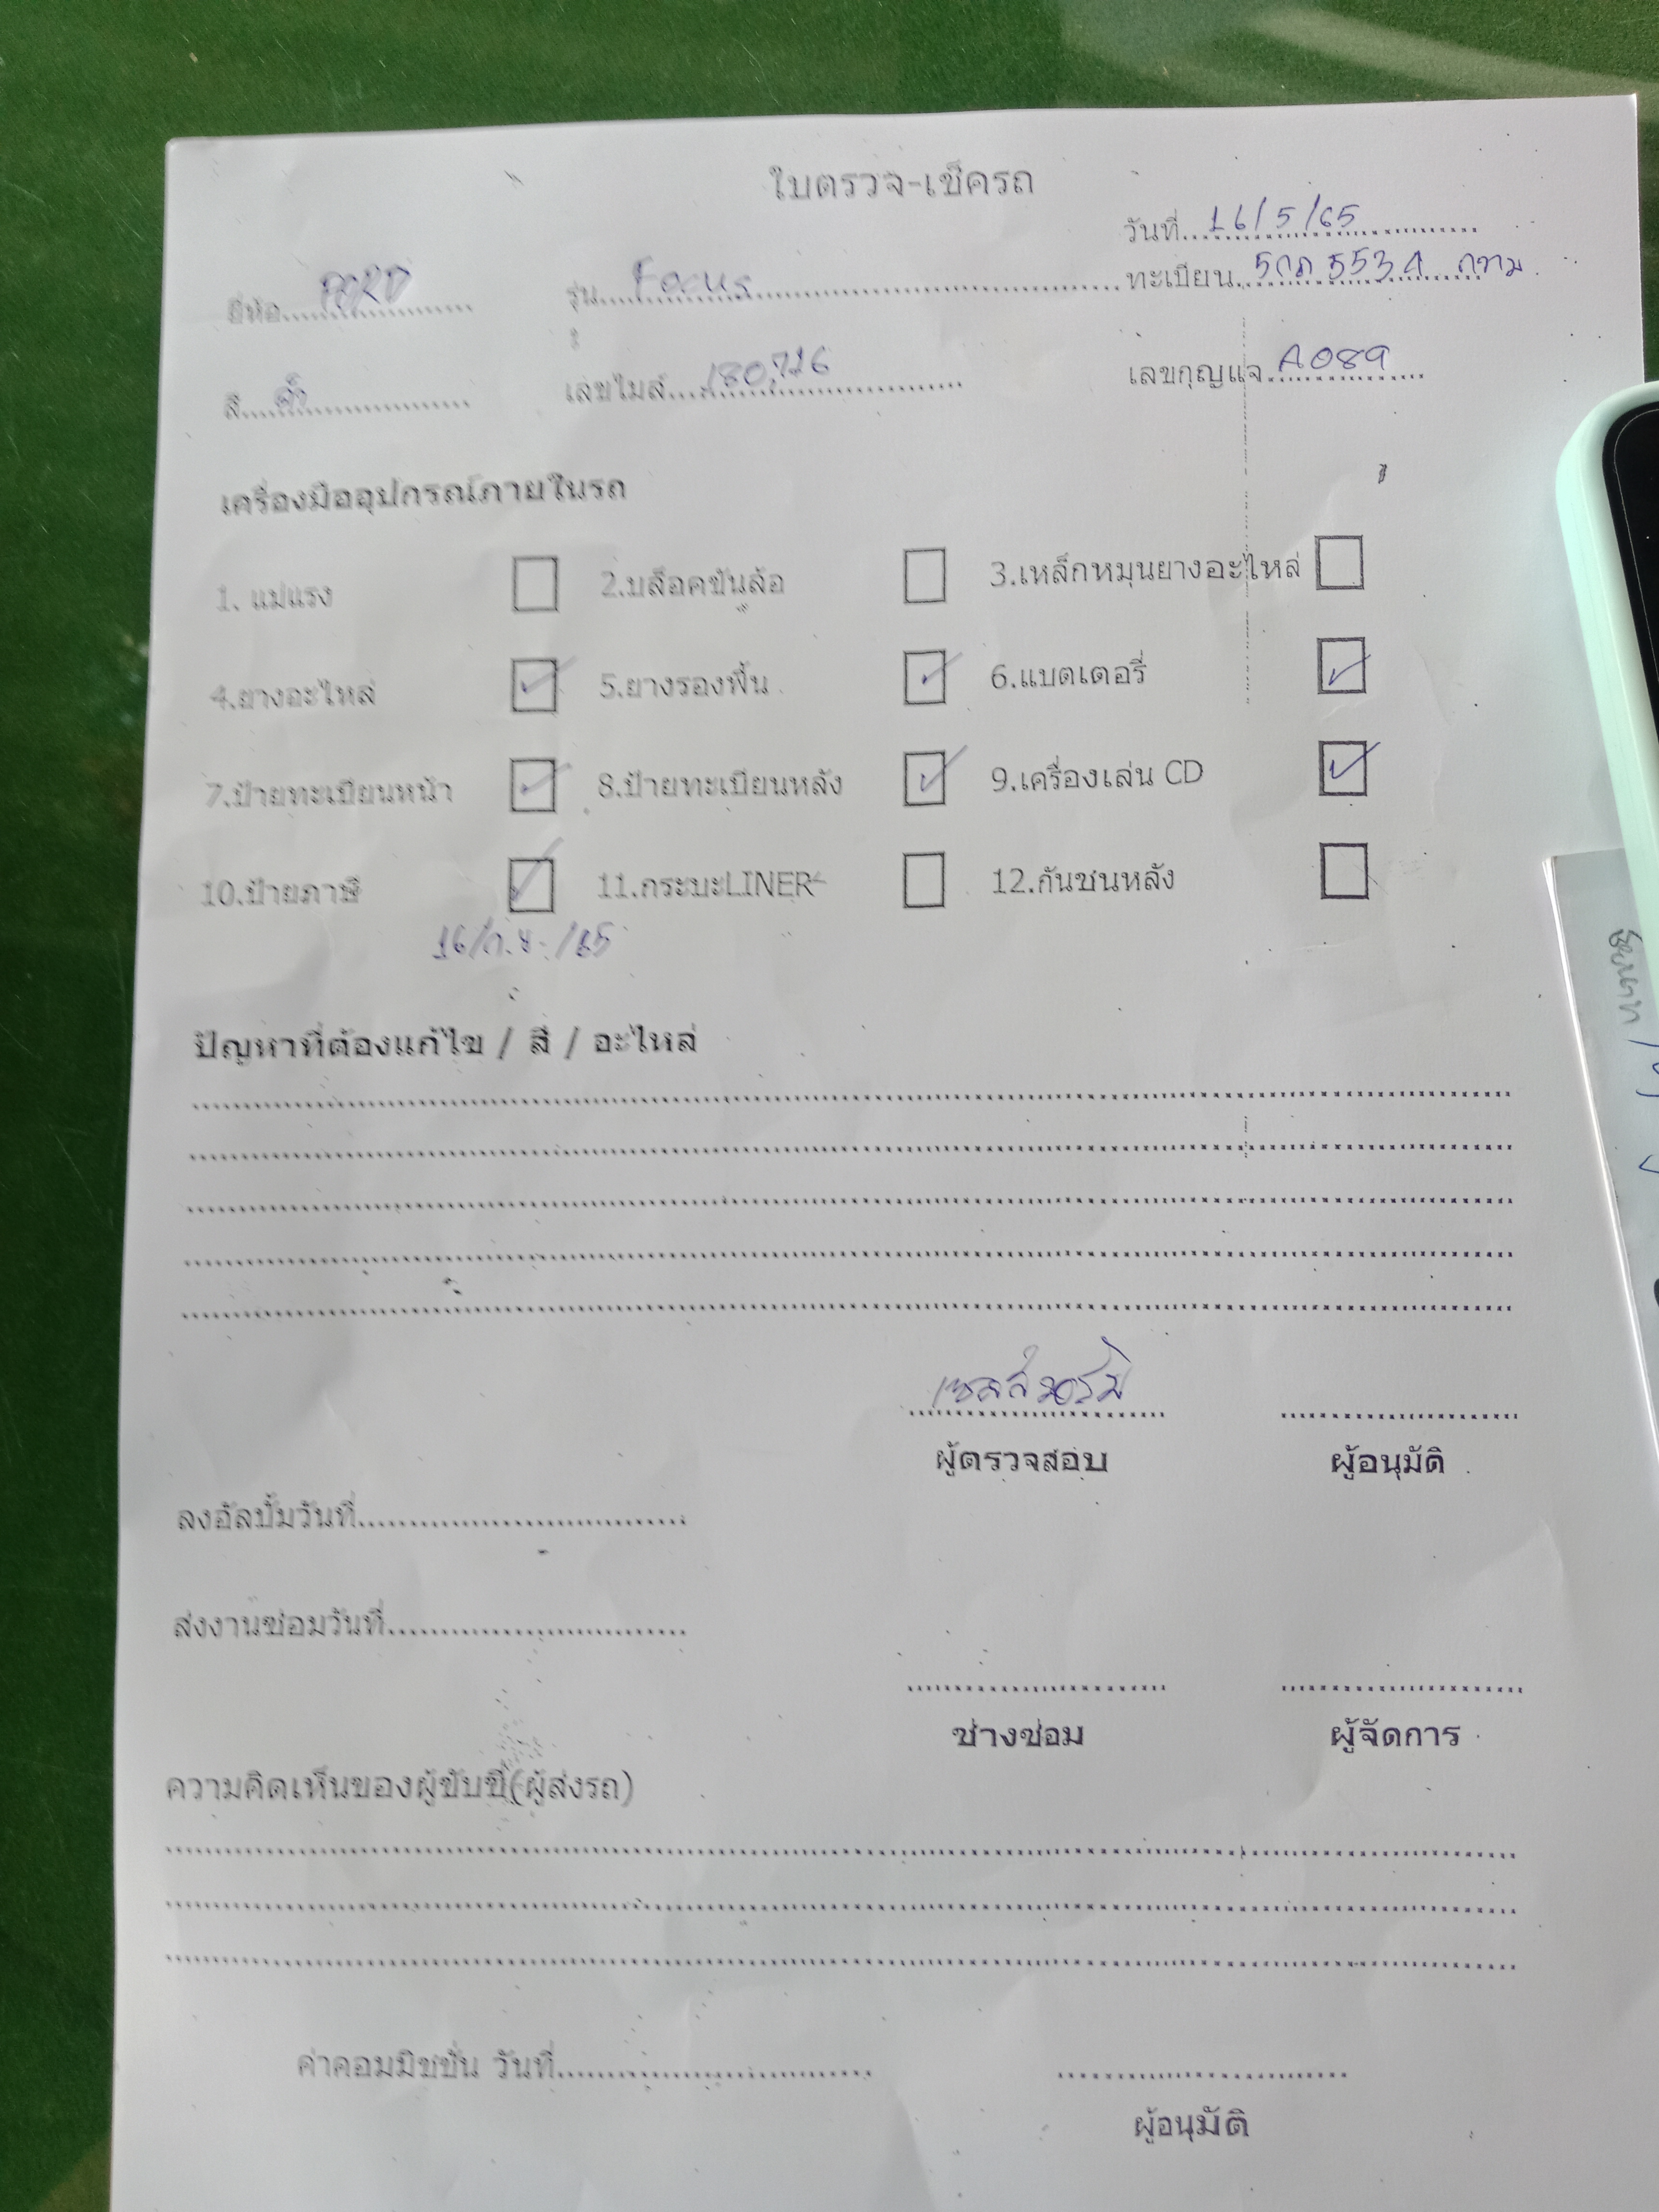 ใบตรวจ-เช็ครถ
วันที่ 16/5/65
ยี่ห้อ FORD รุ่น Focus ทะเบียน 5กภ 5534 กทม
สี ดำ เลขไมล์ 180,716 เลขกุญแจ A089
เครื่องมืออุปกรณ์ภายในรถ
1. แม่แรง 2.บล็อคขันล้อ 3.เหล็กหมุนยางอะไหล่
4.ยางอะไหล่ ✓ 5.ยางรองพื้น ✓ 6.แบตเตอรี่ ✓
7.ป้ายทะเบียนหน้า ✓ 8.ป้ายทะเบียนหลัง ✓ 9.เครื่องเล่น CD ✓
10.ป้ายภาษี ✓ 11.กระบะLINER 12.กันชนหลัง
16/ก.ย./65
ปัญหาที่ต้องแก้ไข / สี / อะไหล่
ผู้ตรวจสอบ ผู้อนุมัติ
ลงอัลบั้มวันที่
ส่งงานซ่อมวันที่
ช่างซ่อม ผู้จัดการ
ความคิดเห็นของผู้ขับขี่(ผู้ส่งรถ)
ค่าคอมมิชชั่น วันที่
ผู้อนุมัติ